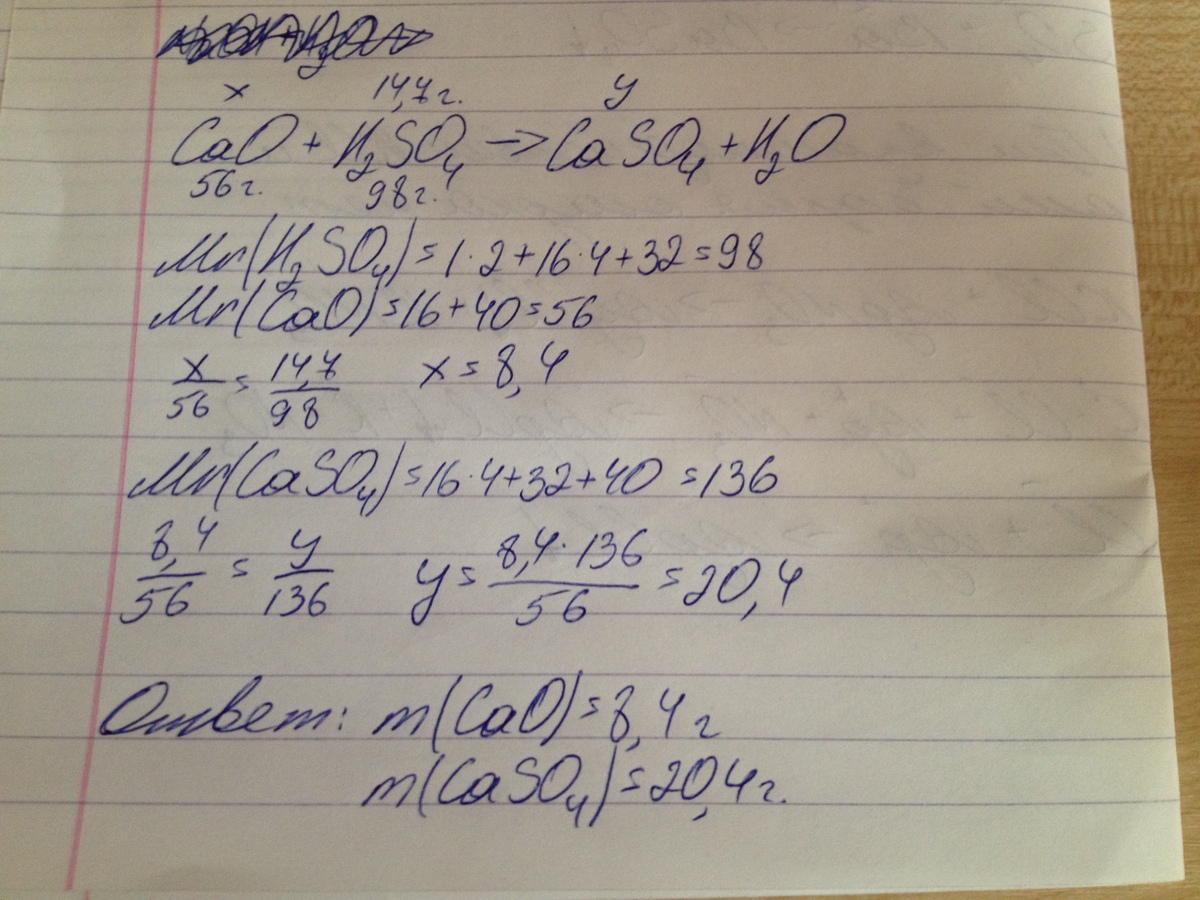 x 14,7г. y
CaO + H₂SO₄ → CaSO₄ + H₂O
56г. 98г.
Mr(H₂SO₄) = 1·2+16·4+32=98
Mr(CaO) = 16+40=56
x/56 = 14,7/98 x = 8,4
Mr(CaSO₄) = 16·4+32+40 = 136
8,4/56 = y/136 y = 8,4·136/56 = 20,4
Ответ: m(CaO) = 8,4 г
m(CaSO₄) = 20,4 г.